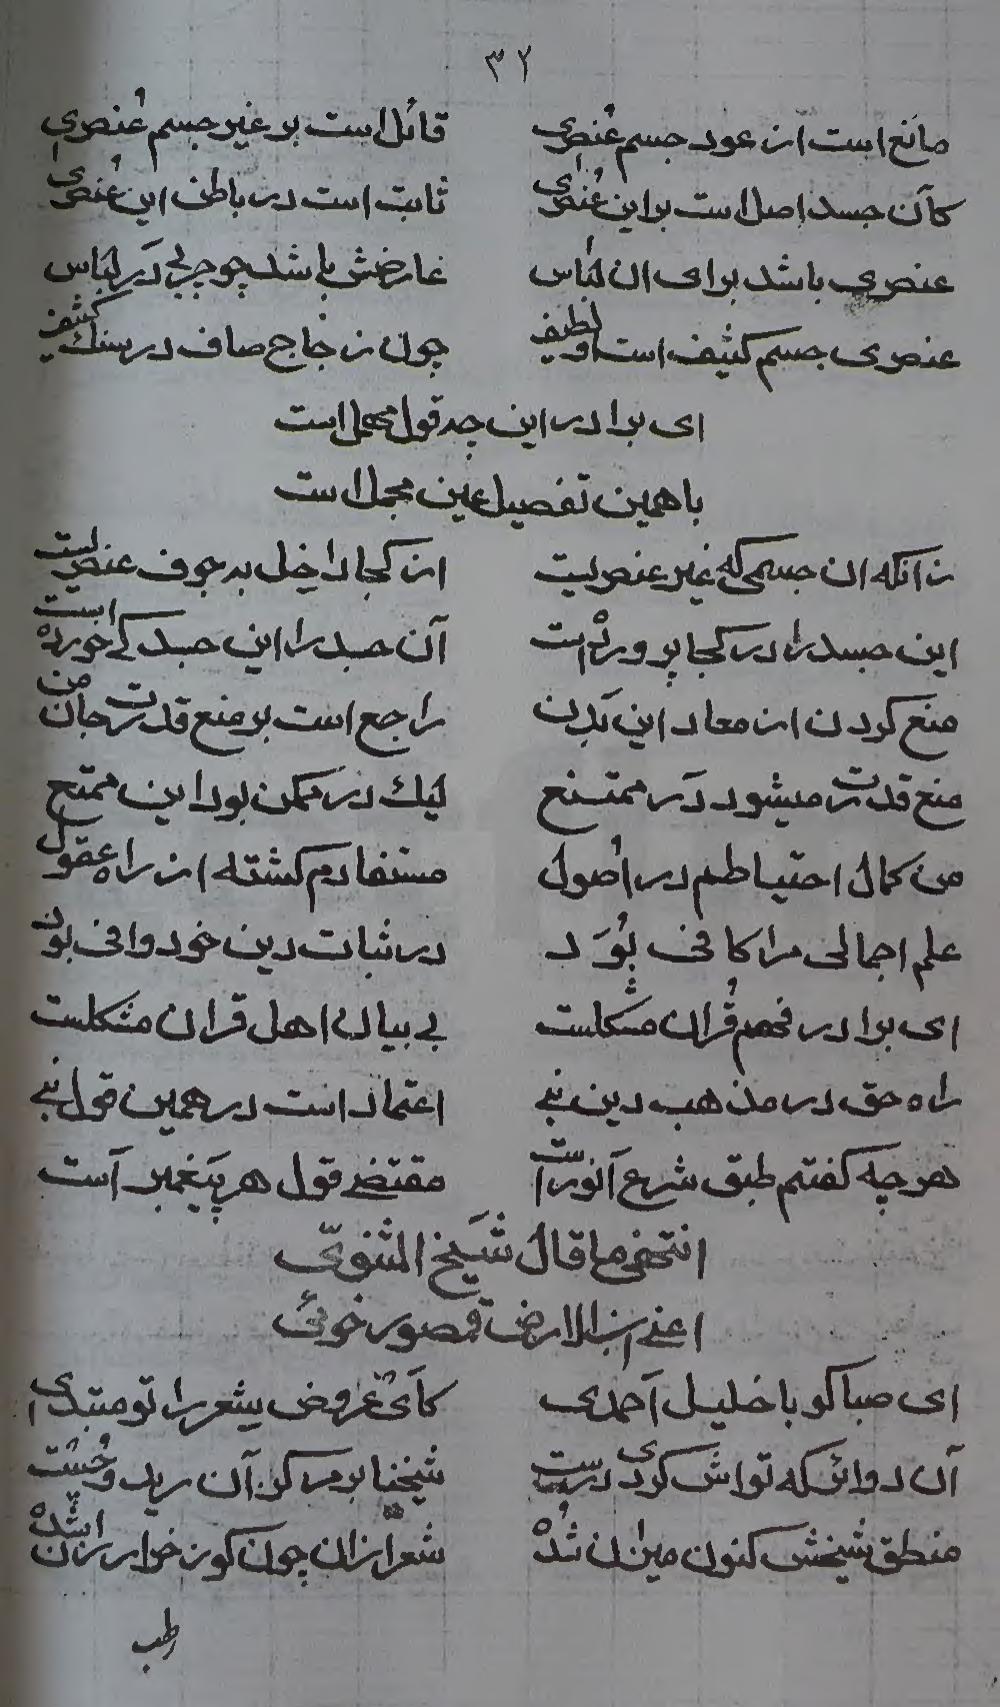 ۳۲
مانع است از عود جسم عُنصری قائل است بر غیر جسم عُنصری
کآن جسد اصل است بر این عُنصری ثابت است در باطن این عُنصری
عنصری باشد برای ان لباس عارضش باشد چو در لباس
عنصری جسم کثیف است و لطیف چون زجاج صاف در سنک کثیف
ای برادر این چه قول مهمل است
با همین تفصیل عین مجمل است
زانکه ان جسمی که غیر عنصریست از کجا داخل بجوف عنصریست
این جسد را در کجا پرورده است آن جسد را این جسد کے خورده است
منع کردن از معاد این بدن راجع است بر منع قدرت جان من
منع قدرت میشود در ممتنع لیك در ممکن بود این ممتنع
من کمال احتیاطم در اصُول مستفادم کشته از راه عقول
علم اجمالی مرا کافی بُوَد در ثبات دین خود وافی بود
ای برادر فهم قُران مشکلست بی بیان اهل قران مشکلست
راه حق در مذهب دین نبے اعتماد است در همین قول نبے
هر چه کفتم طبق شرع آنور است مقتضے قول هر پَیغمبر است
انتهی ما قال شَیخ الثنویّ
اعنے الارض قصور خوئی
ای صبا کو با خلیل آحمدی کآی عَروض شعر را تو مبتدی
آن دوائیکه تواش کردی درست شیخنا بر مرکز آن رید و جُست
منطق شیخش کنون میزان شُده شعر ازان چون کوز خوار ارزان شده
رطب